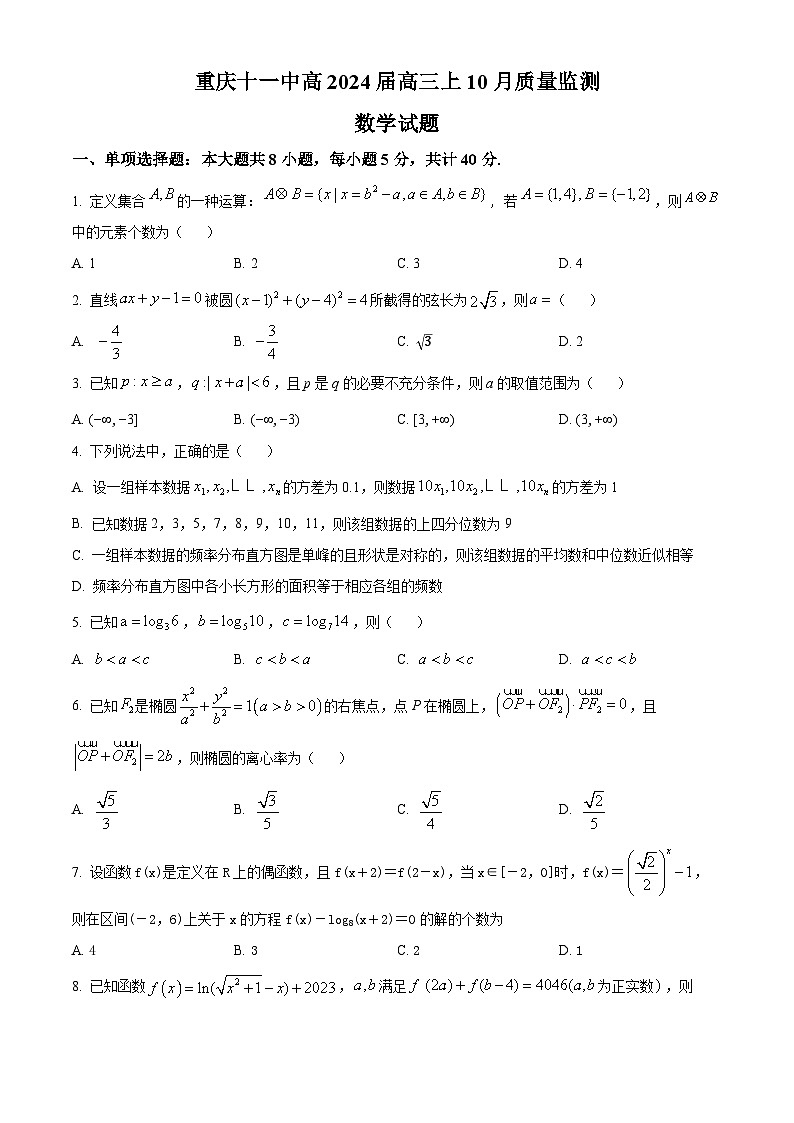 重庆十一中高 2024 届高三上 10 月质量监测
数学试题
一、单项选择题：本大题共 8 小题，每小题 5 分，共计 40 分.
1. 定义集合 A,B 的一种运算：A⊗B={x|x=b²−a,a∈A,b∈B}，若 A={1,4},B={−1,2}，则 A⊗B
中的元素个数为（ ）
A. 1 B. 2 C. 3 D. 4
2. 直线 ax+y−1=0 被圆 (x−1)²+(y−4)²=4 所截得的弦长为 2√3，则 a=（ ）
A. −4/3 B. −3/4 C. √3 D. 2
3. 已知 p:x≥a，q:|x+a|<6，且 p 是 q 的必要不充分条件，则 a 的取值范围为（ ）
A. (−∞, −3] B. (−∞, −3) C. [3, +∞) D. (3, +∞)
4. 下列说法中，正确的是（ ）
A. 设一组样本数据 x₁, x₂,L L ,xₙ 的方差为 0.1，则数据 10x₁,10x₂,L L ,10xₙ 的方差为 1
B. 已知数据 2，3，5，7，8，9，10，11，则该组数据的上四分位数为 9
C. 一组样本数据的频率分布直方图是单峰的且形状是对称的，则该组数据的平均数和中位数近似相等
D. 频率分布直方图中各小长方形的面积等于相应各组的频数
5. 已知 a=log₃6，b=log₅10，c=log₇14，则（ ）
A. b<a<c B. c<b<a C. a<b<c D. a<c<b
6. 已知 F₂ 是椭圆 x²/a²+y²/b²=1(a>b>0) 的右焦点，点 P 在椭圆上，(OP+OF₂)·PF₂=0，且
|OP+OF₂|=2b，则椭圆的离心率为（ ）
A. √5/3 B. √3/5 C. √5/4 D. √2/5
7. 设函数 f(x)是定义在 R 上的偶函数，且 f(x＋2)＝f(2－x)，当 x∈[－2，0]时，f(x)＝(√2/2)ˣ−1，
则在区间(－2，6)上关于 x 的方程 f(x)－log₈(x＋2)＝0 的解的个数为
A. 4 B. 3 C. 2 D. 1
8. 已知函数 f(x)=ln(√(x²+1)−x)+2023，a,b 满足 f(2a)+f(b−4)=4046(a,b 为正实数)，则